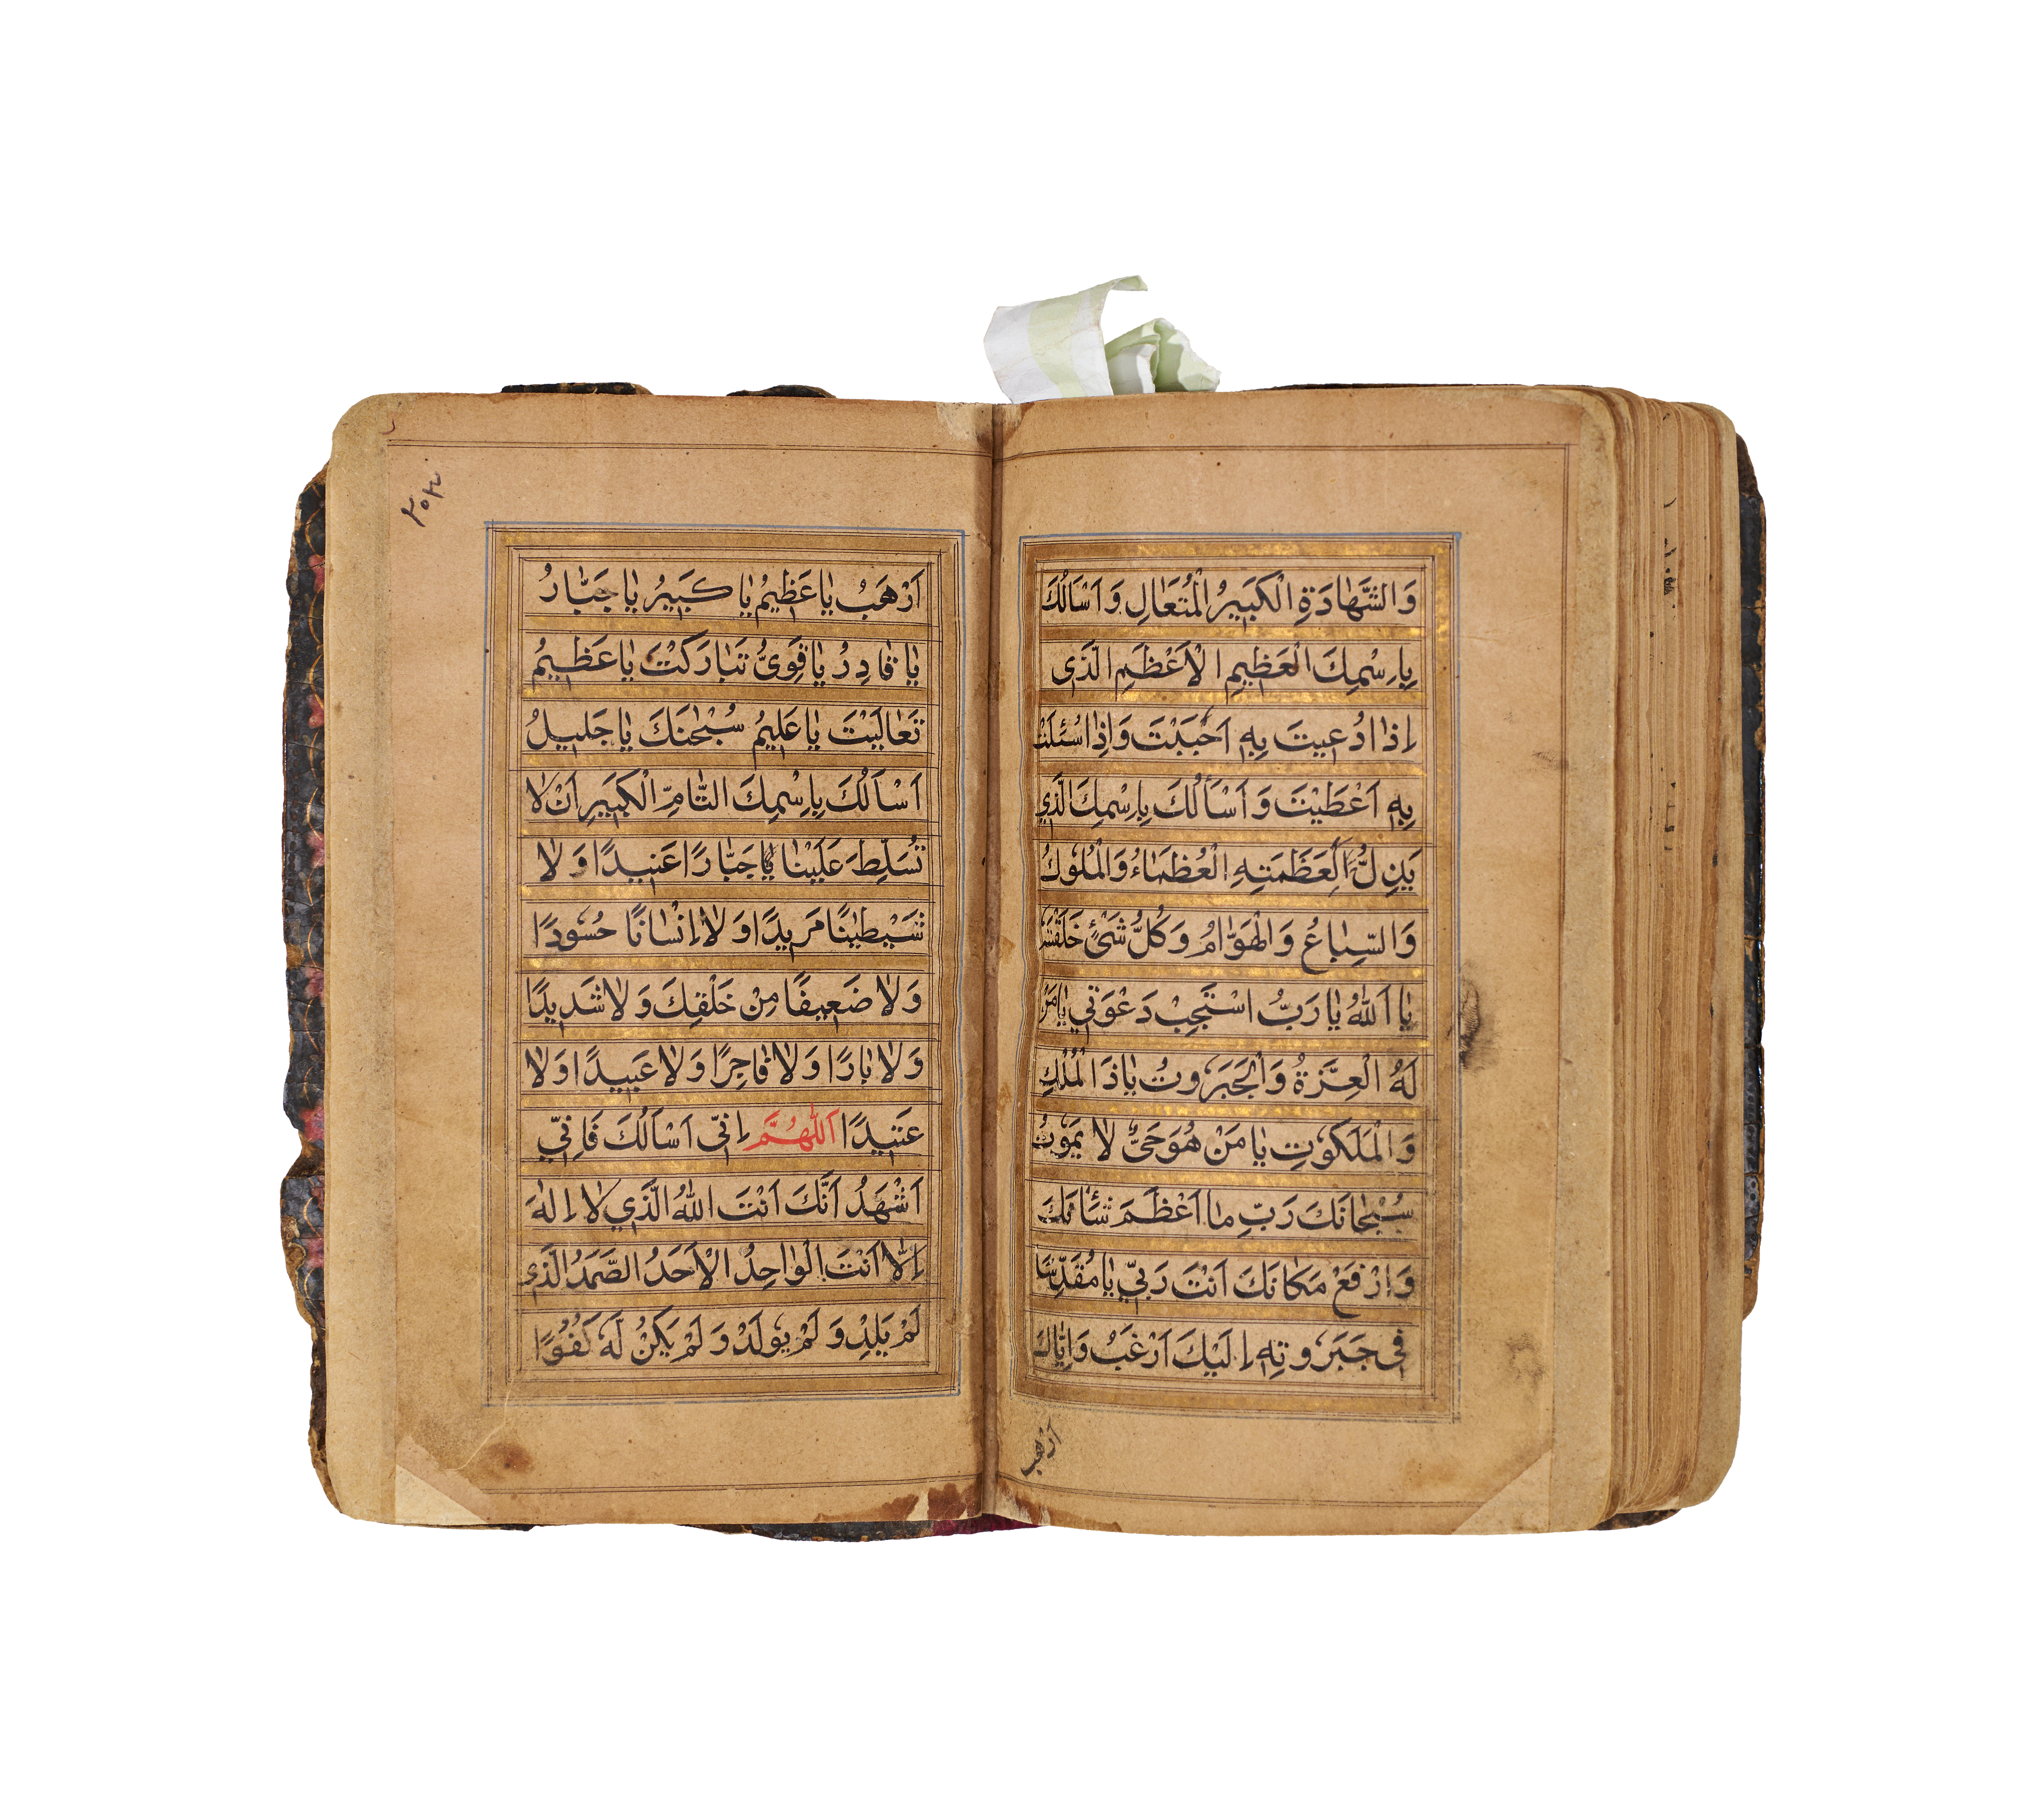 وَالشَّهَادَةِ الْكَبِيرُ الْمُتَعَالِ وَاَسْاَلُكَ
بِاِسْمِكَ الْعَظِيمِ الْاَعْظَمِ الَّذَى
اِذَا دُعِيتَ بِهِ اَجَبْتَ وَاِذَا سُئِلْتَ
بِهِ اَعْطَيْتَ وَاَسْأَلُكَ بِاِسْمِكَ الَّذِي
يَذِلُّ لِعَظَمَتِهِ الْعُظَمَاءُ وَالْمُلُوكُ
وَالسِّبَاعُ وَالْهَوَّامُ وَكُلُّ شَئٍْ خَلَقْتَهُ
يَا اَللهُ يَا رَبُّ اسْتَجِبْ دَعْوَتِي يَا مَنْ
لَهُ الْعِزَّةُ وَالْجَبَرُوتُ يَا ذَا الْمُلْكِ
وَالْمَلَكُوتِ يَا مَنْ هُوَ حَىٌّ لَا يَمُوتُ
سُبْحَانَكَ رَبِّ مَا اَعْظَمَ شَأْنَكَ
وَارْفَعْ مَكَانَكَ اَنْتَ رَبِّي يَا مُقَدِّسًا
فِى جَبَرُوتِهِ اِلَيْكَ اَرْغَبُ وَاِيَّاكَ
ارهب
٢٥٣
اَرْهَبُ يَا عَظِيمُ يَا كَبِيرُ يَا جَبَّارُ
يَا قَادِرُ يَا قَوِىُّ تَبَارَكْتَ يَا عَظِيمُ
تَعَالَيْتَ يَا عَلِيمُ سُبْحٰنَكَ يَا جَلِيلُ
اَسْاَلُكَ بِاِسْمِكَ التَّامِّ الْكَبِيرِ اَنْ لَا
تُسَلِّطَ عَلَيْنَا جَبَّارًا عَنِيدًا وَلَا
شَيْطٰنًا مَرِيدًا وَلَا اِنْسَانًا حَسُودًا
وَلَا ضَعِيفًا مِنْ خَلْقِكَ وَلَا شَدِيدًا
وَلَا بَارًا وَلَا فَاجِرًا وَلَا عَبِيدًا وَلَا
عَنِيدًا اَللّٰهُمَّ اِنِّى اَسْاَلُكَ فَاِنِّي
اَشْهَدُ اَنَّكَ اَنْتَ اللهُ الَّذِي لَا اِلٰهَ
اِلَّا اَنْتَ الْوَاحِدُ الْاَحَدُ الصَّمَدُ الَّذِى
لَمْ يَلِدْ وَلَمْ يُولَدْ وَلَمْ يَكُنْ لَهُ كُفُوًا